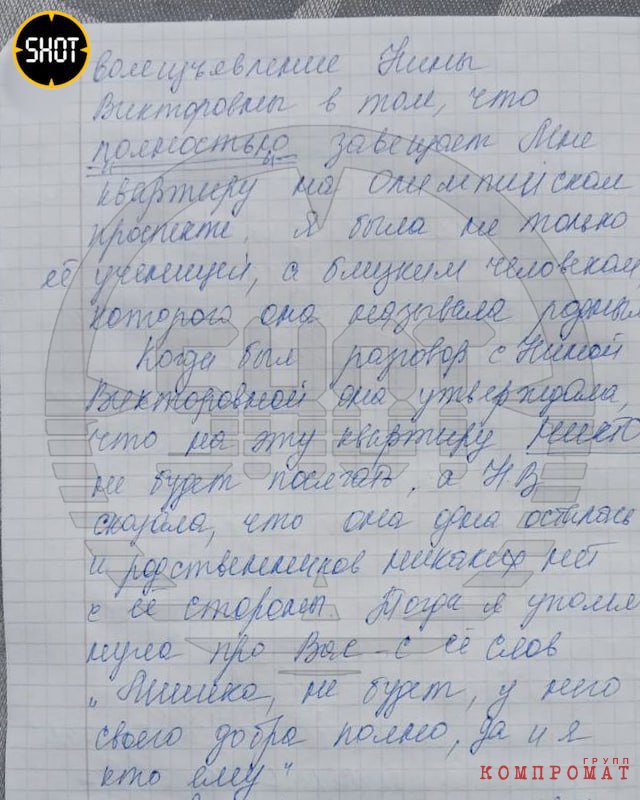 SHOT
волеизъявление Нины
Викторовны в том, что
полностью завещает мне
квартиру на олимпийском
проспекте. Я была не только
её ученицей, а близким человеком,
которого она называла родным
Когда был разговор с Ниной
Викторовной она утверждала,
что на эту квартиру никто
не будет посягать, а НВ
сказала, что она одна осталась
и родственников никаких нет
с её стороны. Тогда я упомя
нула про Вас - с её слов
„Мишка, не будет, у него
своего добра полно, да и я
кто ему"
ГРУПП
КОМПРОМАТ